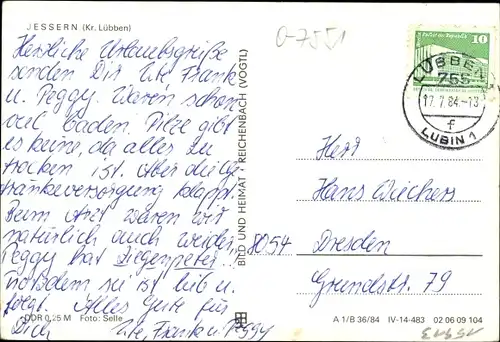 JESSERN (Kr. Lübben)
Herzliche Urlaubsgrüße
senden Dir Ute, Frank
u. Peggy. Waren schon
viel baden. Pilze gibt
es keine, da alles zu
trocken ist. Aber die Ge-
tränkeversorgung klappt.
Beim Arzt waren wir
natürlich auch wieder,
Peggy hat Ziegenpeter.
Trotzdem ist sie lieb u.
folgt. Alles Gute für
Dich Ute, Frank u. Peggy
DDR 0,25 M Foto: Selle
BILD UND HEIMAT · REICHENBACH (VOGTL)
0-7551
10
LÜBBEN
755
17.7.84-13
f
LUBIN 1
Herr
Hans Wiechers
8054 Dresden
Grundstr. 79
A 1/B 36/84 IV-14-483 02 06 09 104